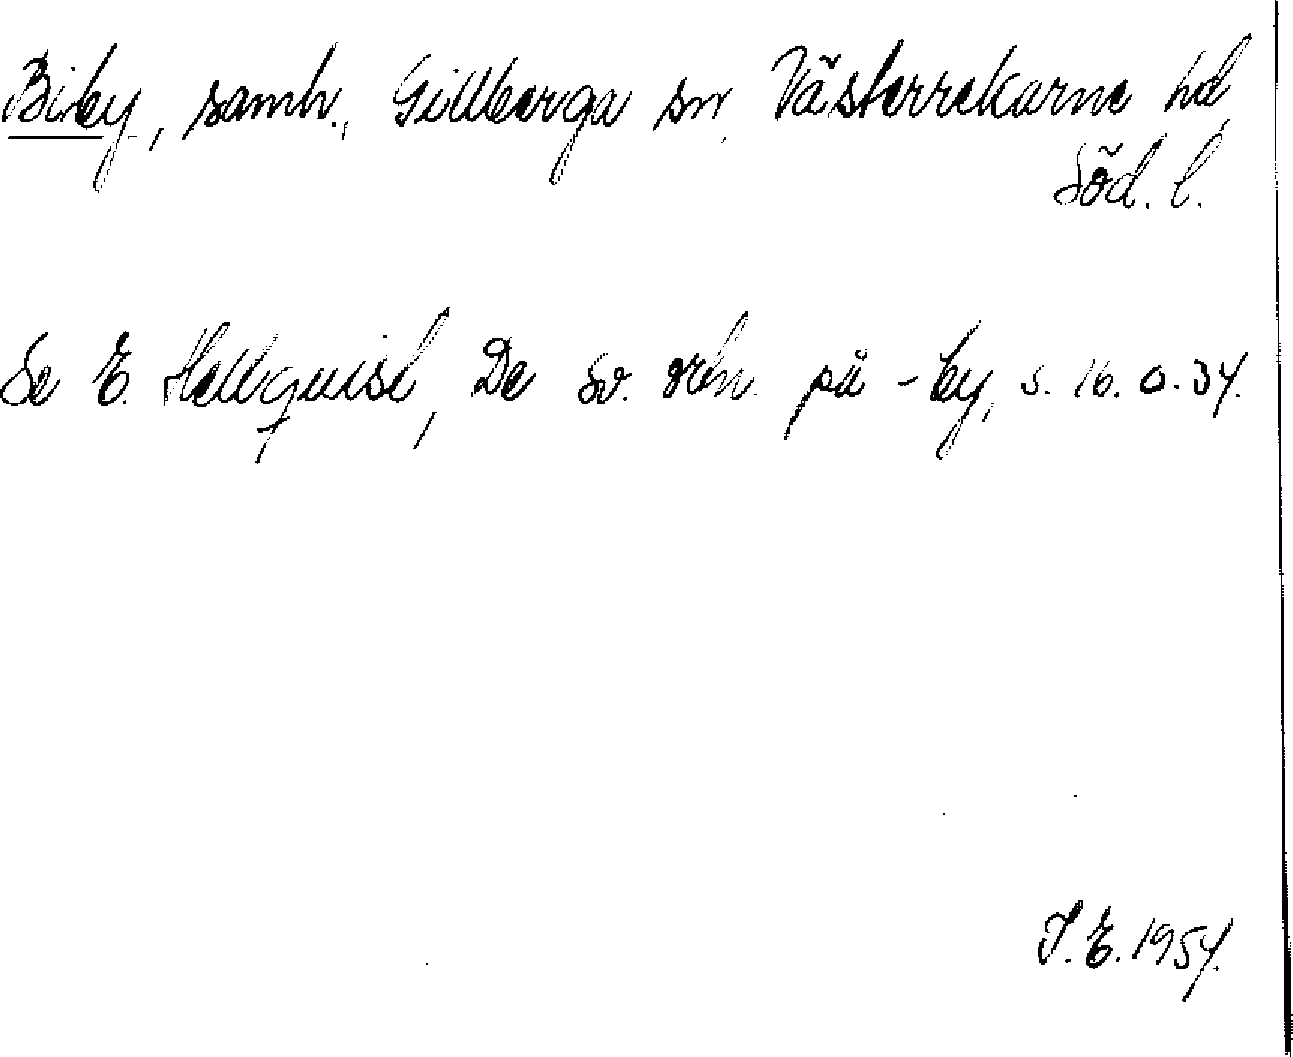 Biby, samh., Gillberga sn, Västerrekarne hd,
Söd. l.
Se E. Hellquist, De sv. ortn. på -by, s. 16. o. 34.
I. E. 1954.